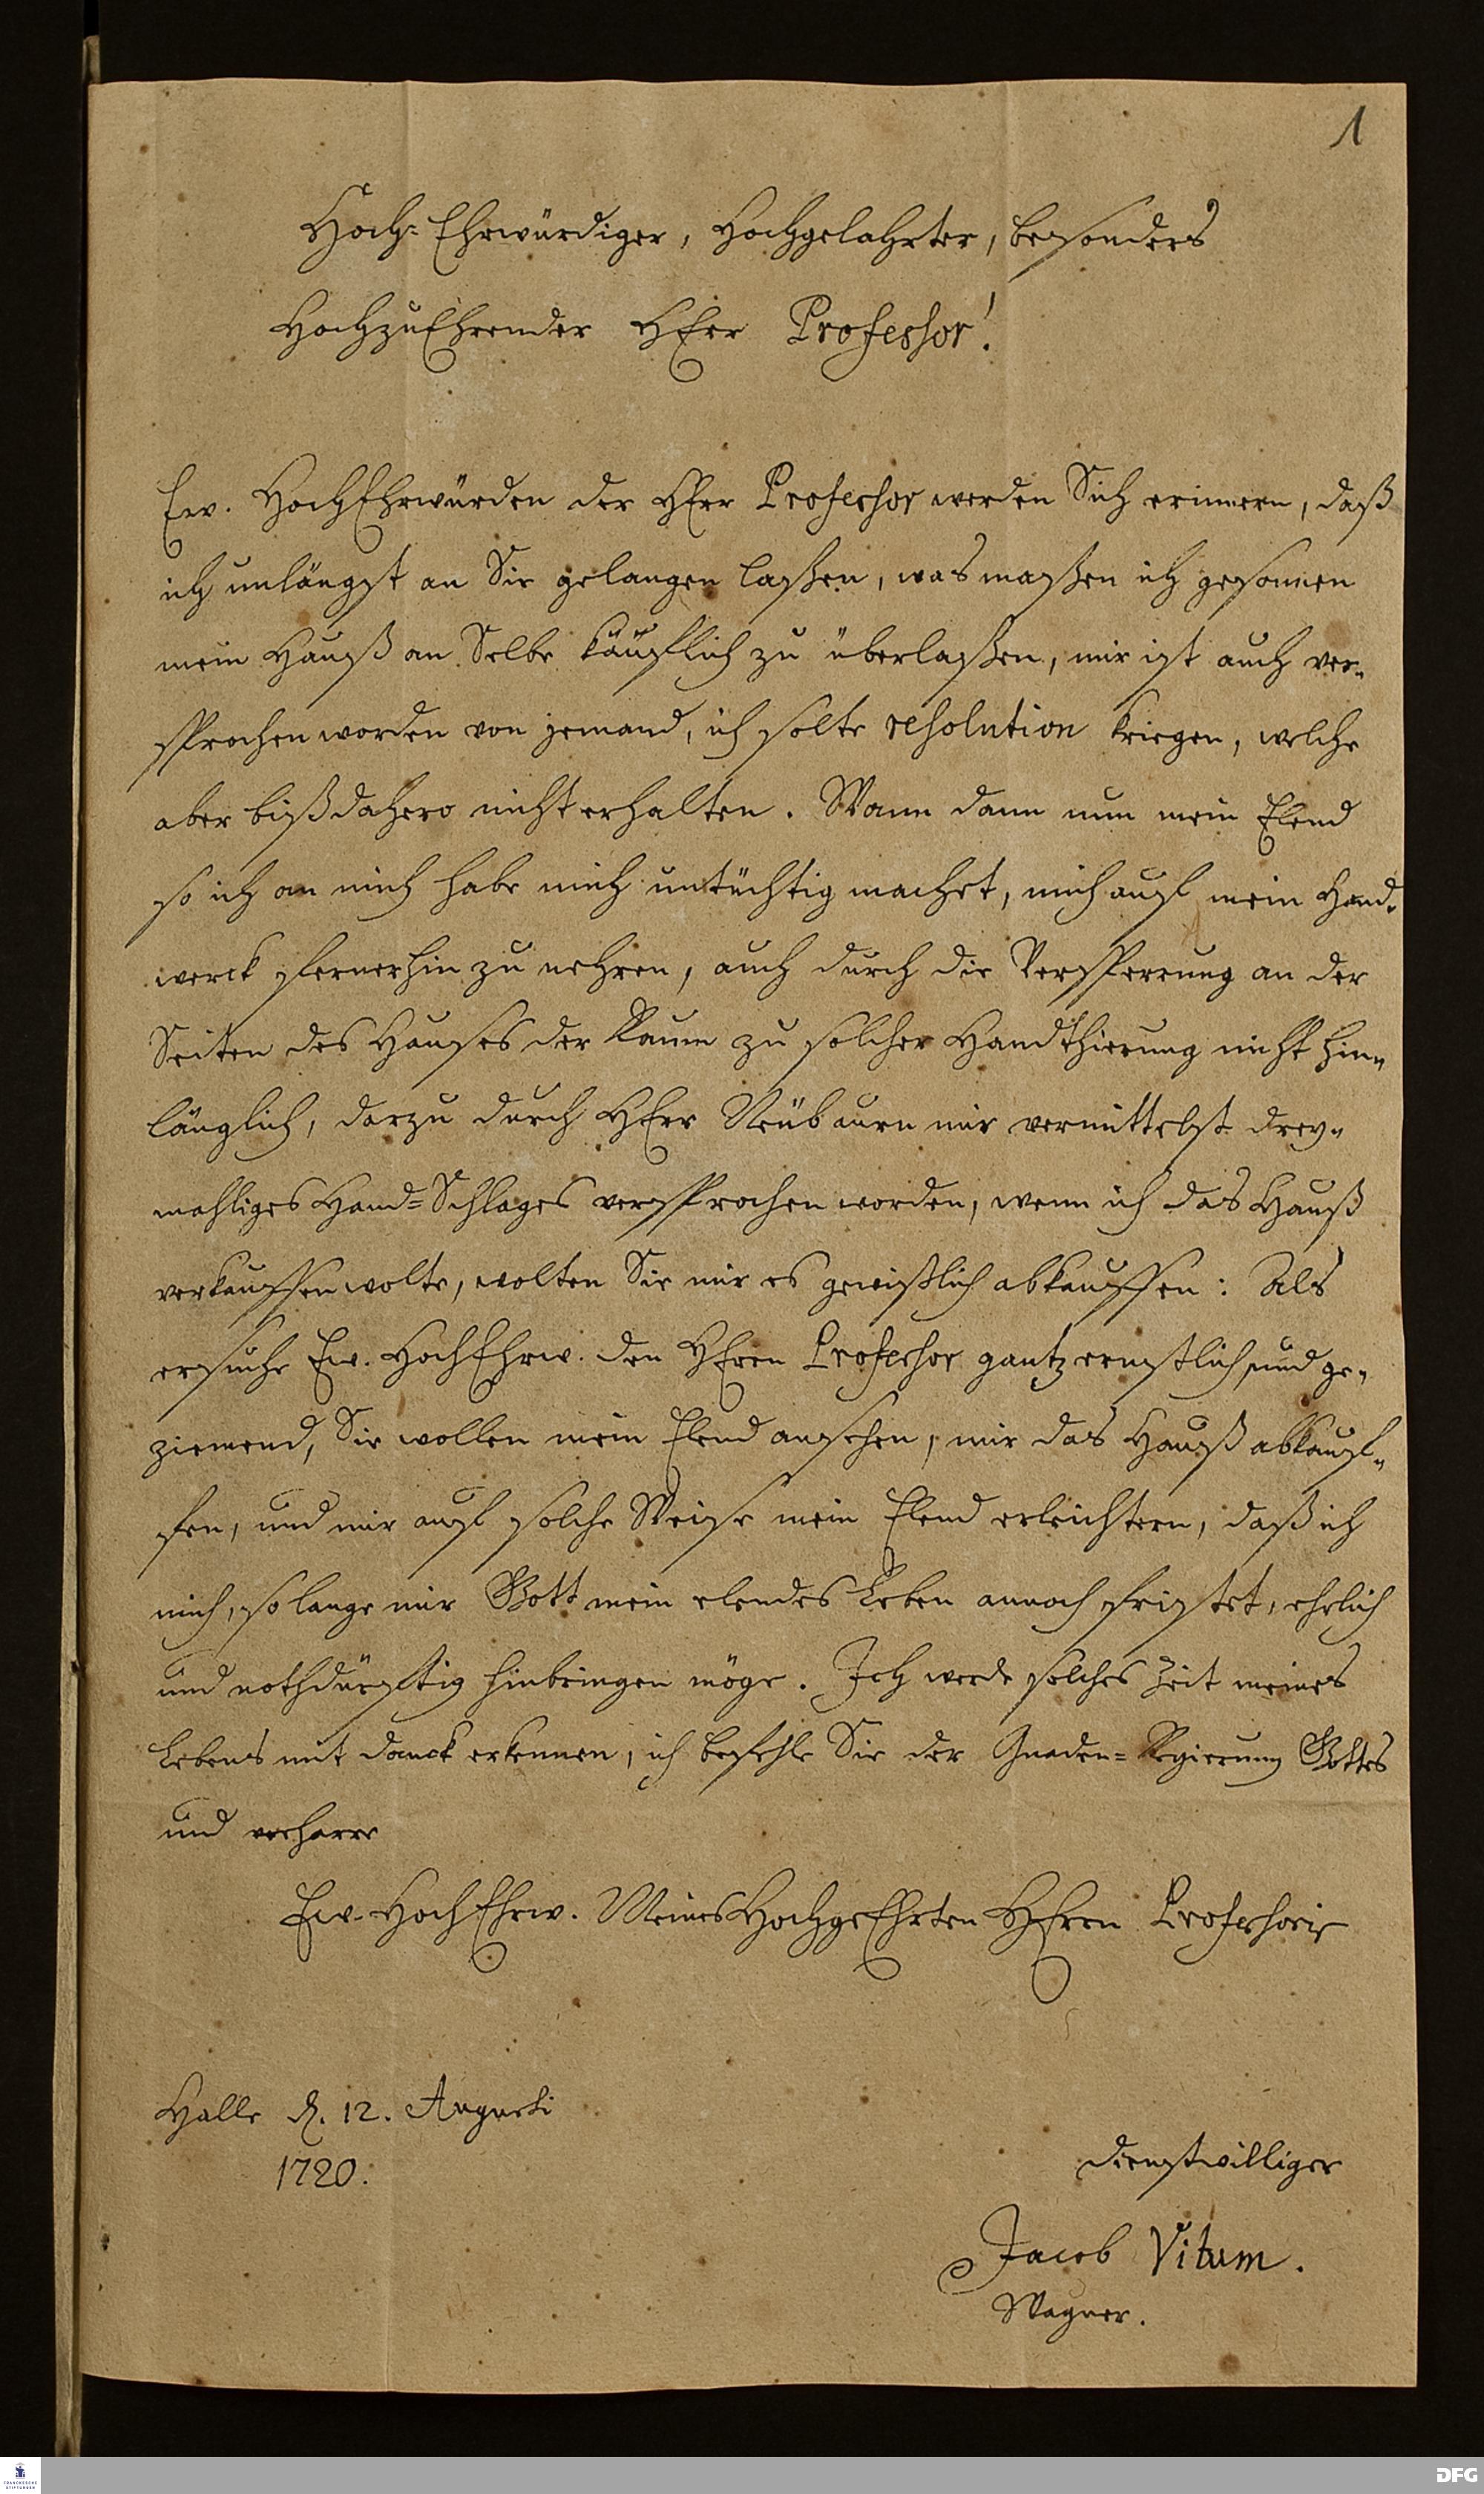 1
Hoch-Ehrwürdiger, Hochgelahrter, besonders
HochzuEhrender HErr Professor!
Ew. HochEhrwürden der HErr Professor werden Sich erinnern, daß
ich unlängst an Sie gelangen laßen, was maßen ich gesonnen
mein Hauß an Selbe käufflich zu überlaßen, mir ist auch ver-
sprochen worden von jemand, ich solte resolution kriegen, welche
aber bißdahero nicht erhalten. Wann dann nun mein Elend
so ich an mich habe mich untüchtig machet, mich auf mein Hand-
werck fernerhin zu nehren, auch durch die Versperrung an der
Seiten des Hauses der Raum zu solcher Handthierung nicht hin-
länglich, darzu durch HErr Neübauern mir vermittelst drey-
mahliges Hand-Schlages versprochen worden, wenn ich das Hauß
verkauffen wolte, wolten Sie mir es gewißlich abkauffen: Als
ersuche Ew. HochEhrw. den HErrn Professor gantz ernstlich und ge-
ziemend, Sie wollen mein Elend ansehen, mir das Hauß abkauf-
fen, und mir auf solche Weise mein Elend erleichtern, daß ich
mich, so lange mir Gott mein elendes Leben annoch fristet, ehrlich
und nothdürfftig hinbringen möge. Ich werde solches Zeit meines
Lebens mit danck erkennen, ich befehle Sie der Gnaden-Regierung Gottes
und verharre
Ew. HochEhrw. Meines HochgeEhrten HErrn Professoris
Halle d. 12. Augusti
1720.
dienstwilliger
Jacob Vitum.
Wagner.
FRANCKESCHE
STIFTUNGEN
DFG